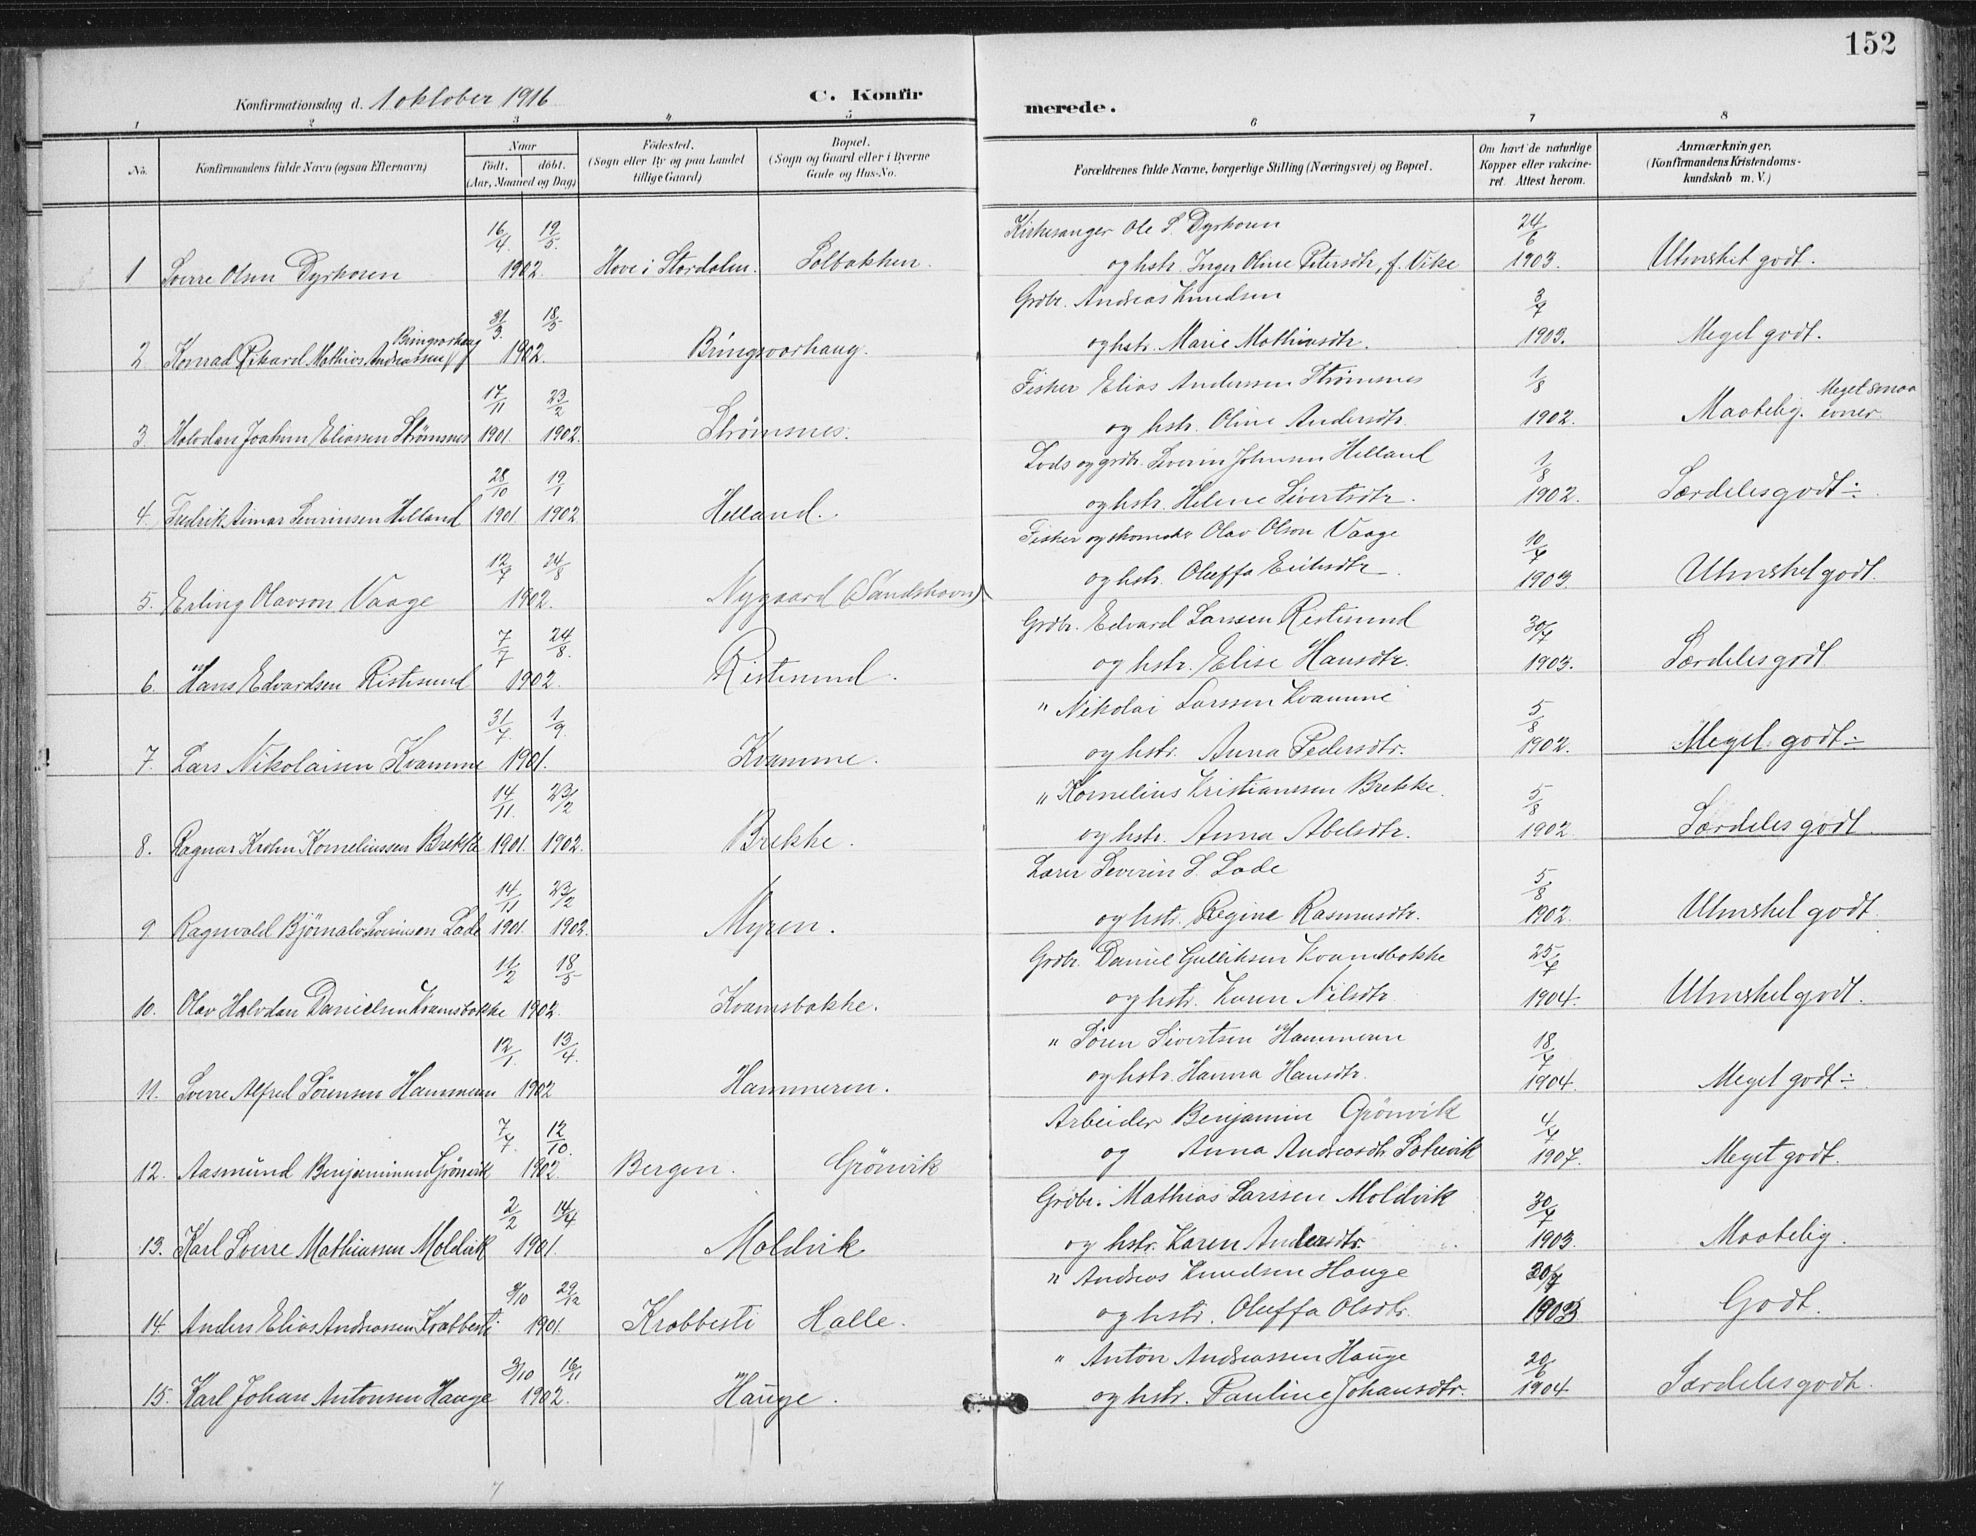 152
Konfirmationsdag d. 1 oktober 1916
C. Konfirmerede.
1 2 3 4 5 6 7 8
No. Konfirmandens fulde Navn (ogsaa Efternavn) Naar født. døbt. (Aar, Maaned og Dag) Fødested. (Sogn eller By og paa Landet tillige Gaard) Bopæl. (Sogn og Gaard eller i Byerne Gade og Hus-No. Forældrenes fulde Navne, borgerlige Stilling (Næringsvei) og Bopæl. Om havt de naturlige Kopper eller vakcineret. Attest herom. Anmærkninger. (Konfirmandens Kristendomskundskab m. V.)
16/4 19/5 Kirkesanger Ole S. Dyrkoren 24/6
1 Sverre Olsen Dyrkoren 1902 Hove i Stordalen. Solbakken. og hstr. Inger Oline Petersdtr, f. Vike 1903. Utmerket godt.
31/3 18/5 Grdbr. Andreas Knudsen 3/7
2 Konrad Rikard Mathias Andreassen Bringsvorhaug 1902. Bringsvorhaug. og hstr. Marie Mathiasdtr. 1903. Meget godt.
17/11 23/2 Fisker Elias Anderssen Strømsnes 1/8 Meget smaa
3 Halvdan Joakim Eliassen Strømsnes 1901 1902. Strømsnes. og hstr. Oline Andersdtr. 1902. Maatelig. evner.
28/10 19/1 Lods og grdbr. Severin Johnsen Helland 1/8
4. Fredrik Aimar Severinsen Helland 1901 1902 Helland. og hstr. Helene Sivertsdtr. 1902. Særdeles godt ÷
12/7 24/8 Fisker og skomaker Olav Olson Vaage 10/7
5. Erling Olavson Vaage 1902. Nygaard (Sandshavn) og hstr. Oluffa Eriksdtr 1903. Utmerket godt.
7/7 24/8. Grdbr. Edvard Larssen Ristesund 30/7
6. Hans Edvardsen Ristesund 1902. Ristesund. og hstr. Elise Hansdtr. 1903. Særdeles godt
31/7 1/9. " Nikolai Larssen Kvamme 5/8
7. Lars Nikolaisen Kvamme 1901. Kvamme. og hstr. Anna Pedersdtr. 1902. Meget godt ÷
14/11. 23/2 " Kornelius Kristianssen Brekke. 5/8
8. Ragnar Krohn Korneliussen Brekke 1901. 1902. Brekke. og hstr. Anna Abelsdtr. 1902. Særdeles godt.
14/11 23/2 Lærer Severin S. Lade 5/8
9. Ragnvald Bjørnalv Severinsen Lade 1901. 1902. Myren. og hstr. Regine Rasmusdtr. 1902. Utmerket godt.
11/2 18/5 Grdbr. Daniel Gulliksen Kvamsbakke 25/7
10. Olav Halvdan Danielsen Kvamsbakke 1902. Kvamsbakke. og hstr. Karen Nilsdtr. 1904. Utmerket godt.
12/1. 13/4. " Søren Sivertsen Hammeren 18/7
11. Sverre Alfred Sørensen Hammeren 1902 Hammeren. og hstr. Hanna Hansdtr. 1904. Meget godt ÷
7/7. 12/10. Arbeider Benjamin Grönvik 4/7
12. Aasmund Benjaminsen Grönvik 1902 Bergen. Grönvik og Anna Andreasdtr. 1907. Meget godt.
2/2 14/4 Grdbr. Mathias Larssen Moldvik 30/7
13. Karl Sverre Mathiassen Moldvik 1901. Moldvik og hstr. Karen Andersdtr. 1903. Maatelig.
8/10 29/12 " Andreas Knudsen Hauge 20/7
14. Anders Elias Andreassen Krabbesti 1901. Krabbesti Halle. og hstr. Oluffa Olsdtr. Godt.
3/10 16/11 " Anton Andreassen Hauge 20/6
15. Karl Johan Antonsen Hauge 1902. Hauge. og hstr. Pauline Johansdtr. 1904. Særdeles godt.